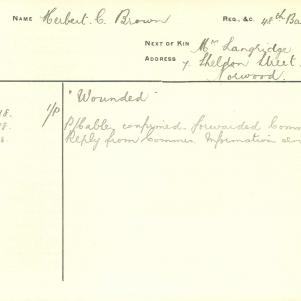 NAME Herbert. C. Brown REG. &C. 48th Ba
NEXT OF KIN Mrs Langridge
ADDRESS 7 Sheldon Street
Norwood.
18. 1/P "Wounded"
18. P/Cable, confirmed. forwarded Comm
8. Reply from Commn. Information